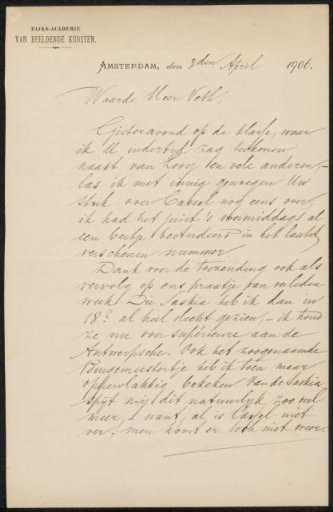 RIJKS-ACADEMIE
VAN BEELDENDE KUNSTEN.
AMSTERDAM, den 3den April 1906.
Waarde Heer Veth,
Gisteravond op de klasse, waar
ik U indertijd zag teekenen
naast van Looy en vele anderen, –
las ik met innig genoegen Uw
stuk over Cassel nog eens over,
ik had het juist 's voormiddags al
een beetje bestudeerd in het laatst
verschenen nummer
Dank voor de toezending ook als
vervolg op ons praatje van verleden
week. Die Saskia heb ik dan in
18? al heel slecht gezien, – ik houd
ze nu voor supérieure aan de
Antwerpsche. Ook het zoogenaamde
Burgemeestertje heb ik toen maar
oppervlakkig bekeken Van de Saskia
spijt mij dit natuurlijk zoo veel
meer, want, al is Cassel niet
ver: men komt er toch niet weer.